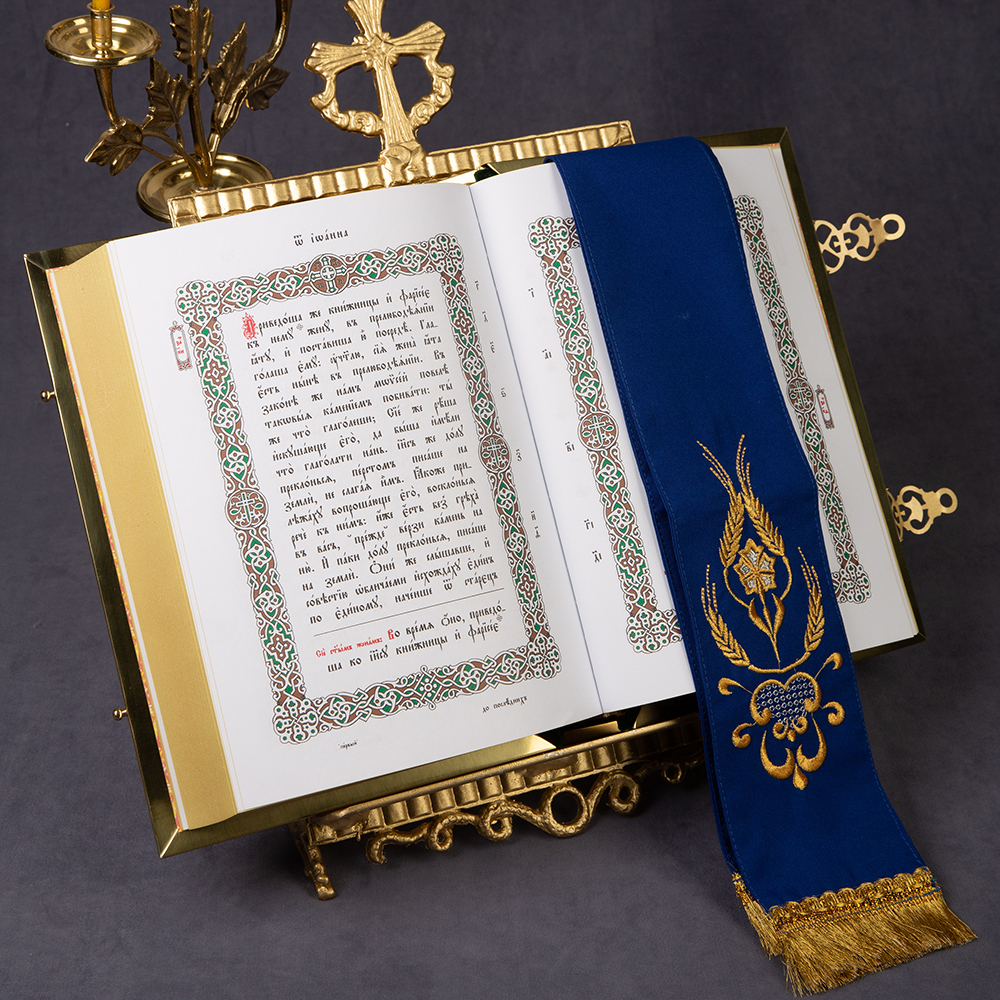 Ѿ Іѡа́нна
Приведо́ша же кни́жницы и҆ фарїсе́є
къ нему̀ жену̀, въ прелюбодѣѧ́нїи
ꙗ҆́ту, и҆ поста́вивше ю҆̀ посредѣ̀. Гла-
го́лаша є҆му̀: ᲂу҆чт҃лю, сїѧ̀ жена̀ ꙗ҆́та
є҆́сть ны́нѣ въ прелюбодѣѧ́нїи. Въ
зако́нѣ же на́мъ мѡѷсе́й повелѣ̀
таковы̑ѧ ка́менїемъ побива́ти: ты́
же что̀ глаго́леши; Сїе́ же рѣ́ша
и҆скуша́юще є҆го̀, да бы́ша и҆мѣ́ли
что̀ глаго́лати на́нь. і҆и҃съ же до́лу
прекло́ньсѧ, пе́рстомъ писа́ше на
землѝ, не слага́ѧ и҆̀мъ. Ꙗ҆́коже при-
лѣжа́ху вопроша́юще є҆го̀, восклони́всѧ
речѐ къ ни̑мъ: и҆́же є҆́сть без̾ грѣха̀
въ ва́съ, пре́жде ве́рзи ка́мень на
ню̀. И҆ па́ки до́лу прекло́ньсѧ, писа́ше
на землѝ. Ѻ҆ни́ же слы́шавше, и҆
со́вѣстїю ѡ҆блича́еми и҆схожда́ху є҆ди́нъ
по є҆ди́ному, наче́нше ѿ ста́рєцъ
Ст҃ы́мъ жена́мъ: Во вре́мѧ ѻ҆́но, приведо́-
ша ко і҆и҃су кни́жницы и҆ фарїсе́є
до послѣ́днихъ